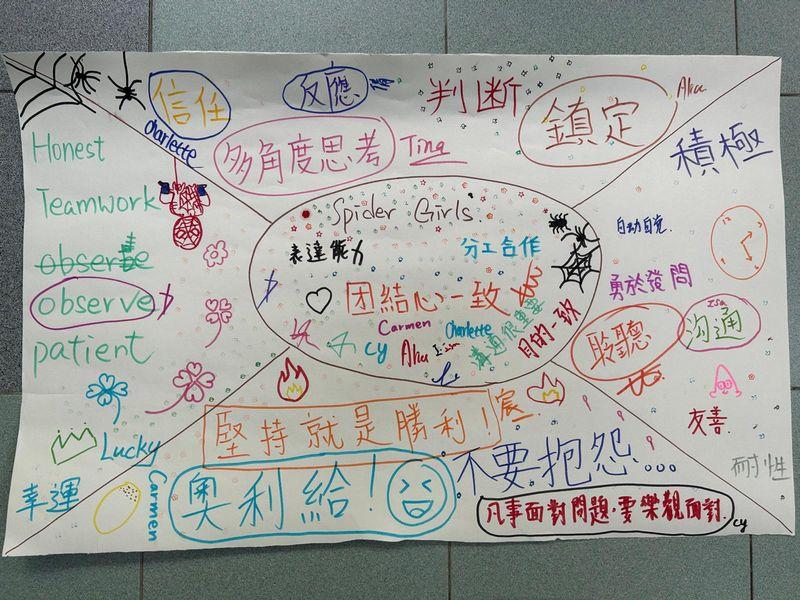 信任
charlette
反應
判断
鎮定
Alia
多角度思考
Tina
積極
Honest
Teamwork
observe
patient
Spider Girls
表達能力
分工合作
团结心一致
Carmen
charlotte
cy
Alia
溝通很重要
目的一致
自动自觉
勇於發問
聆聽
Isa
沟通
友善
耐性
Lucky
幸運
Carmen
堅持就是勝利！
奧利給！
不要抱怨...
凡事面對問題，要樂觀面對.
cy